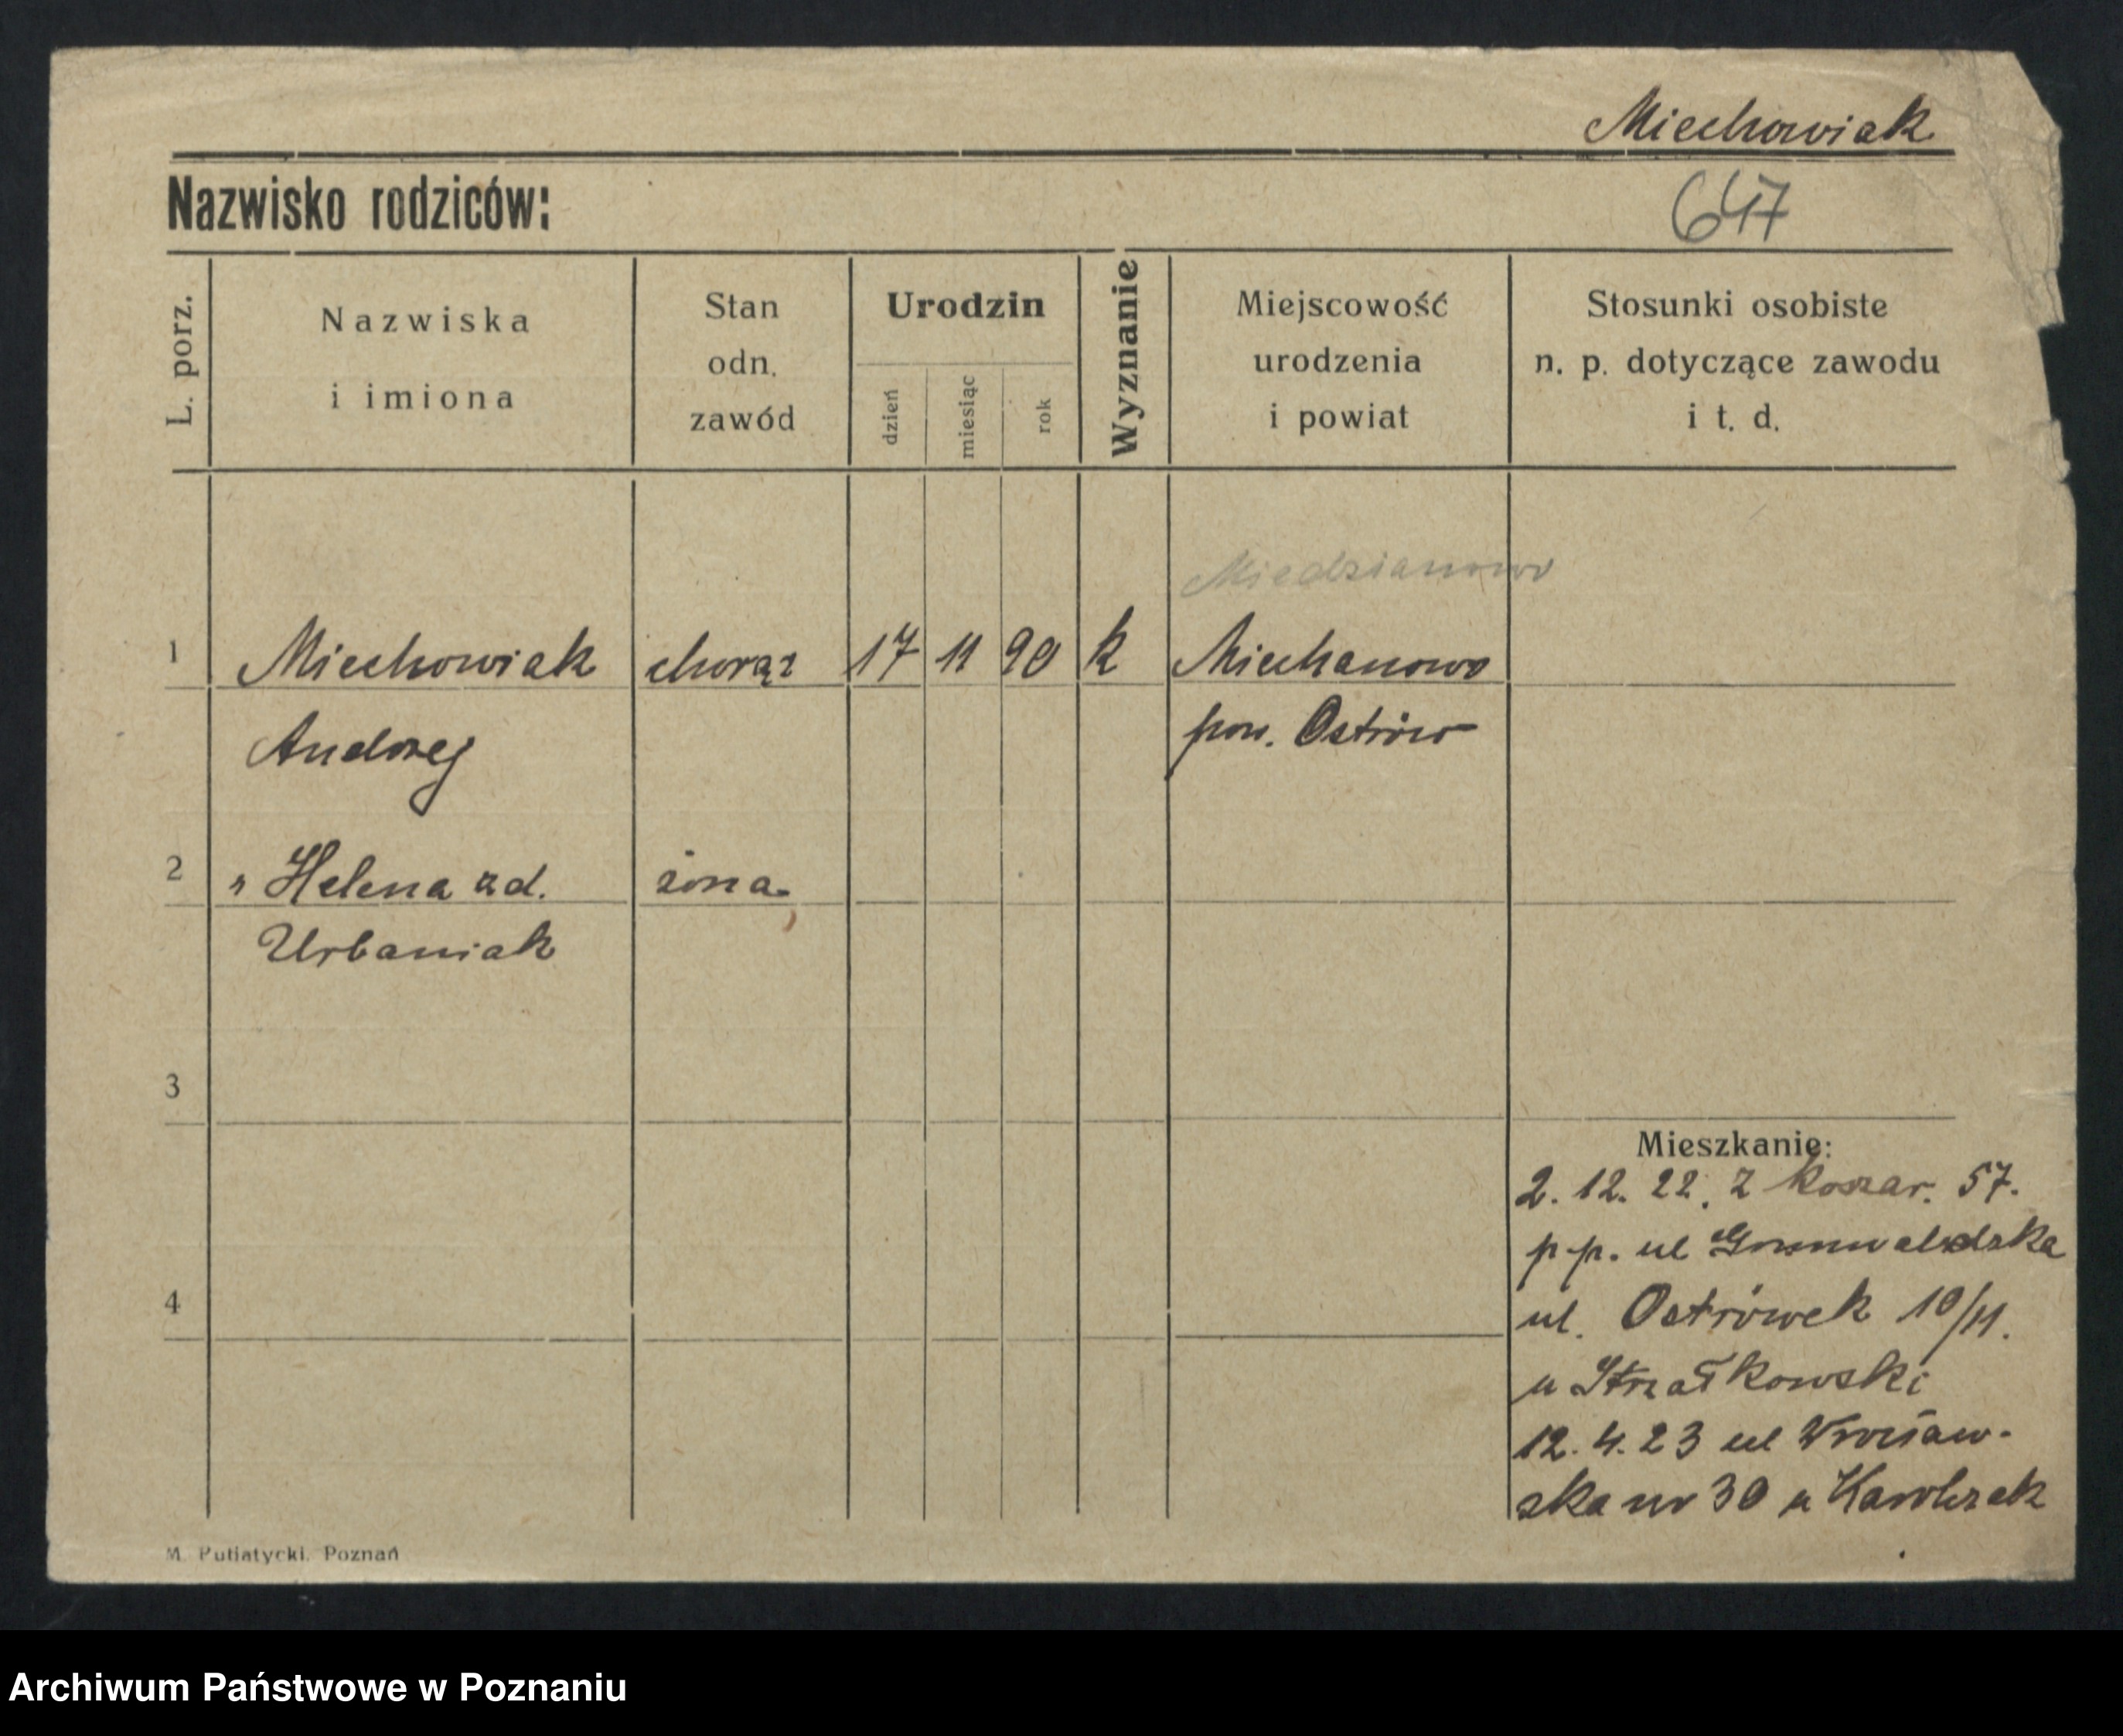 Miechowiak
Nazwisko rodziców:
647
L. porz.
Nazwiska
i imiona
Stan
odn.
zawód
Urodzin
dzień
miesiąc
rok
Wyznanie
Miejscowość
urodzenia
i powiat
Stosunki osobiste
n. p. dotyczące zawodu
i t. d.
Miedzianowo
1 Miechowiak chorąż 17 11 90 k Miechanowo
Andrzej pow. Ostrów
2 " Helena zd. żona
Urbaniak
3
Mieszkanie:
2. 12. 22. z koszar. 57.
p.p. ul Grunwaldzka
4
ul. Ostrówek 10/11.
u Strzałkowski
12. 4. 23 ul Wrocław-
ska nr 30 u
M. Putiatycki, Poznań
Archiwum Państwowe w Poznaniu